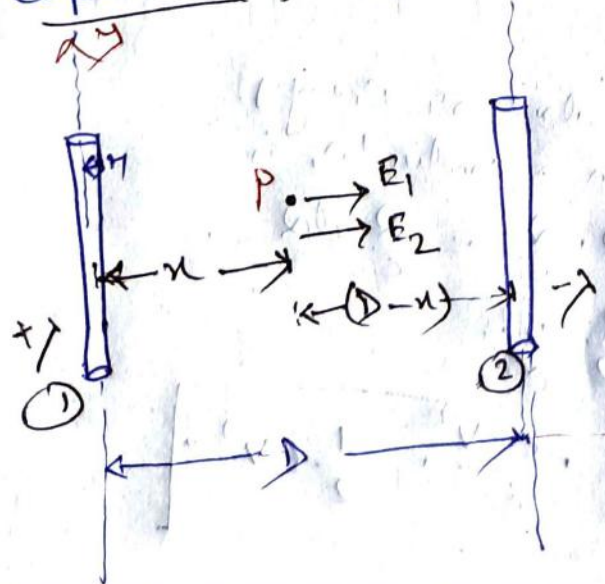 r
P
E1
E2
x
(D-x)
+λ
-λ
1
2
D